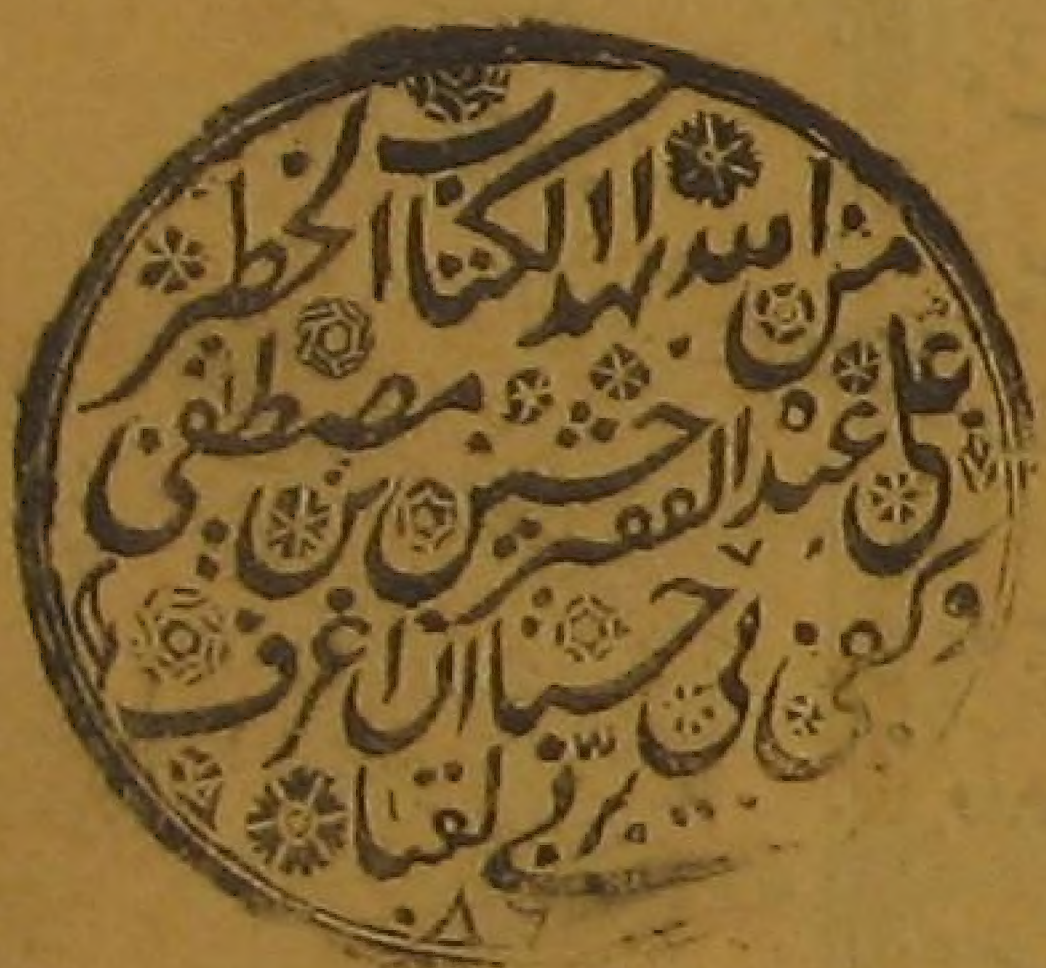 من الله بهذا الكتاب الخطير
على عبده الفقير حسين بن مصطفى
وكفى بي حسبا ان اعرف
لقبا